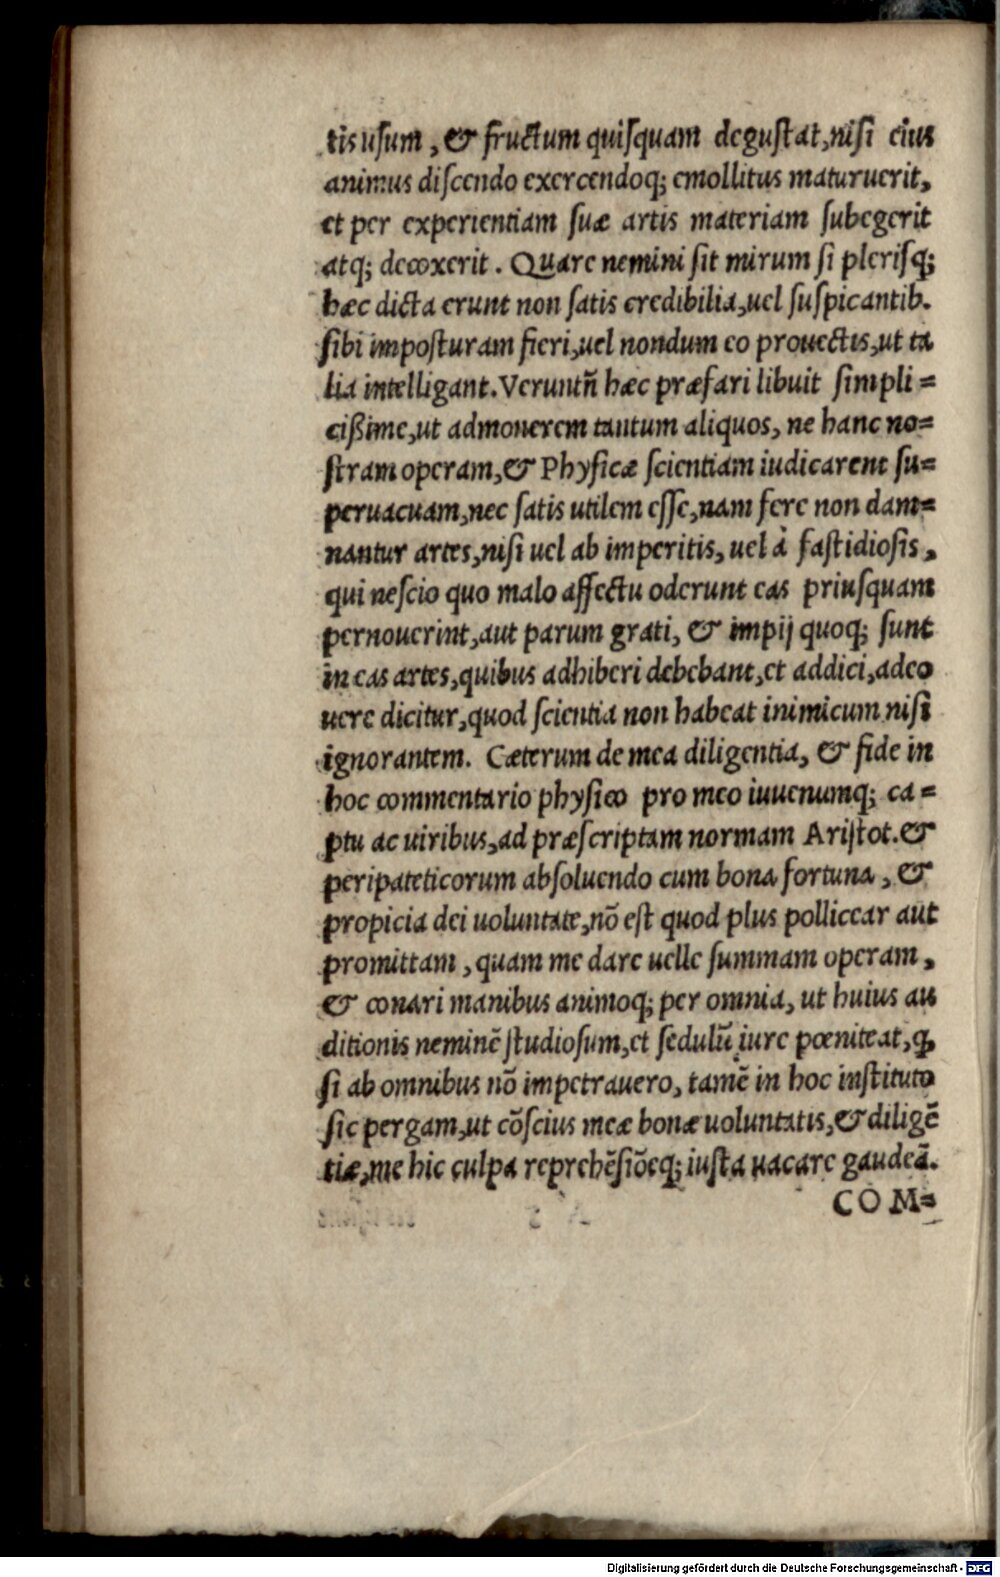 tis usum, & fructum quisquam degustat, nisi eius
animus discendo exercendoq; emollitus maturuerit,
et per experientiam suæ artis materiam subegerit
atq; decoxerit. Quare nemini sit mirum si plerisq;
hæc dicta erunt non satis credibilia, uel suspicantib.
sibi imposturam fieri, uel nondum eo prouectis, ut ta
lia intelligant. Veruntñ hæc præfari libuit simpli=
cißime, ut admonerem tantum aliquos, ne hanc no=
stram operam, & Physicæ scientiam iudicarent su=
peruacuam, nec satis utilem esse, nam fere non dam=
nantur artes, nisi uel ab imperitis, uel à fastidiosis,
qui nescio quo malo affectu oderunt eas priusquam
pernouerint, aut parum grati, & impij quoq; sunt
in eas artes, quibus adhiberi debebant, et addici, adeo
uere dicitur, quod scientia non habeat inimicum nisi
ignorantem. Cæterum de mea diligentia, & fide in
hoc commentario physico pro meo iuuenumq; ca=
ptu ac uiribus, ad præscriptam normam Aristot. &
peripateticorum absoluendo cum bona fortuna, &
propicia dei uoluntate, nõ est quod plus pollicear aut
promittam, quam me dare uelle summam operam,
& conari manibus animoq; per omnia, ut huius au
ditionis neminẽ studiosum, et sedulũ iure pœniteat, q,
si ab omnibus nõ impetrauero, tamẽ in hoc instituto
sic pergam, ut cõscius meæ bonæ uoluntatis, & diligẽ
tiæ, me hic culpa reprehẽsiõeq; iusta uacare gaudeã.
COM=
Digitalisierung gefördert durch die Deutsche Forschungsgemeinschaft - DFG